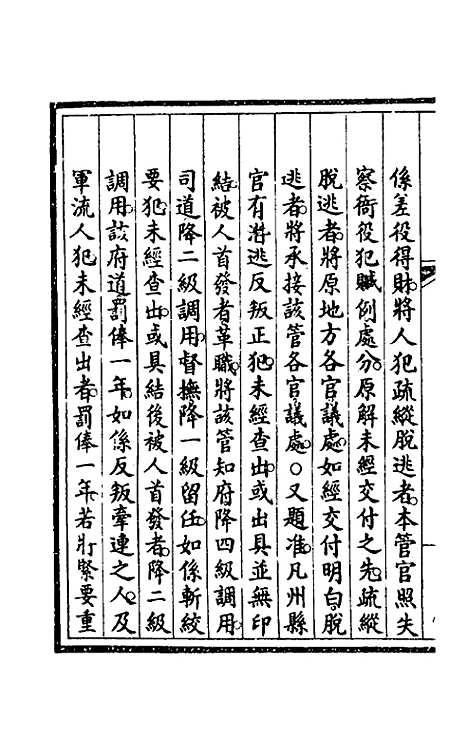 係差役得財將人犯疏縱脫逃者本管官照失
察衙役犯贓例處分原解未經交付之先疏縱
脫逃者將原地方各官議處如經交付明白脫
逃者將承接該管各官議處○又題准凡州縣
官有潛逃反叛正犯未經查出或出具並無印
結被人首發者革職將該管知府降四級調用
司道降二級調用督撫降一級留任如係斬絞
要犯未經查出或具結後被人首發者降二級
調用該府道罰俸一年如係反叛牽連之人及
軍流人犯未經查出者罰俸一年若將緊要重